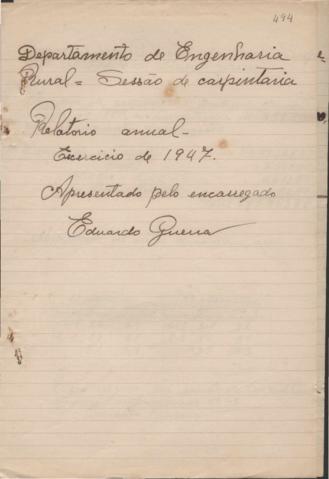 494
Departamento de Engenharia
Rural = Sessão de carpintaria
Relatorio annual -
Exercicio de 1947.
Apresentado pelo encarregado
Eduardo Guerra